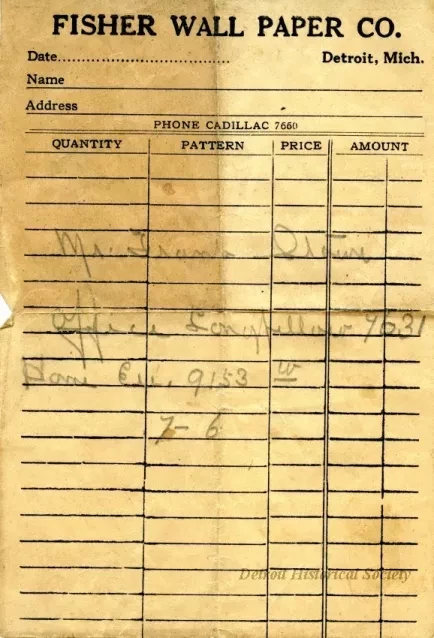 FISHER WALL PAPER CO.
Date.................................... Detroit, Mich.
Name
Address
PHONE CADILLAC 7660
QUANTITY PATTERN PRICE AMOUNT
Mr.
Office Longfellow 7631
Home Euc. 9153 W
7-6
Detroit Historical Society